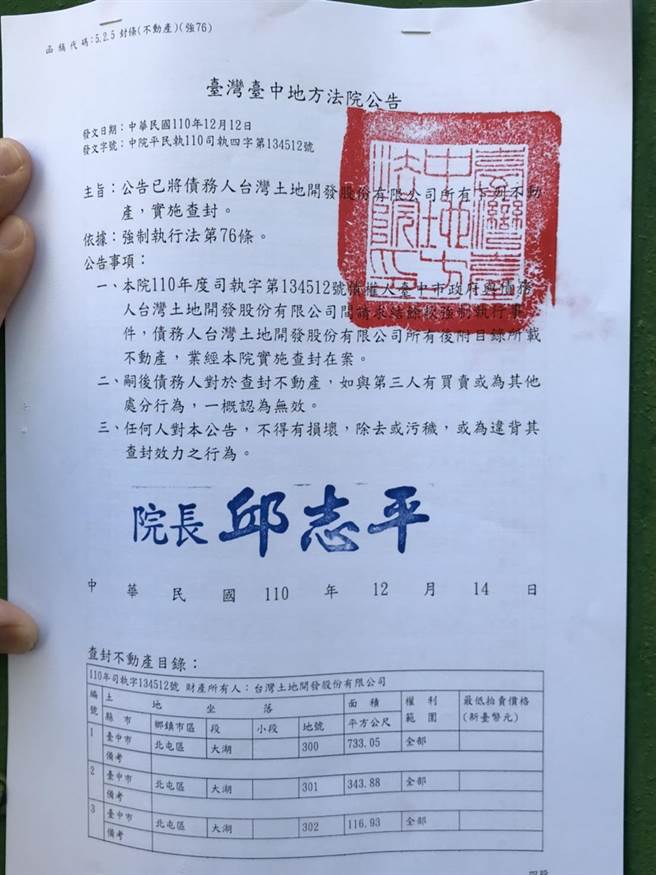 函稿代碼:5.2.5 封條(不動產)(強76)
臺灣臺中地方法院公告
發文日期：中華民國110年12月12日
發文字號：中院平民執110司執四字第134512號
臺灣臺中地方法院印
主旨：公告已將債務人台灣土地開發股份有限公司所有下列不動
產，實施查封。
依據：強制執行法第76條。
公告事項：
一、本院110年度司執字第134512號債權人臺中市政府與債務
人台灣土地開發股份有限公司間請求
強制執行事
件，債務人台灣土地開發股份有限公司所有後附目錄所載
不動產，業經本院實施查封在案。
二、嗣後債務人對於查封不動產，如與第三人有買賣或為其他
處分行為，一概認為無效。
三、任何人對本公告，不得有損壞，除去或污穢，或為違背其
查封效力之行為。
院長 邱志平
中華民國 110 年 12 月 14 日
查封不動產目錄：
110年司執字134512號 財產所有人：台灣土地開發股份有限公司
編號 土地坐落 面積 權利 最低拍賣價格
縣市 鄉鎮市區 段 小段 地號 平方公尺 範圍 (新臺幣元)
1 臺中市 北屯區 大湖 300 733.05 全部
備考
2 臺中市 北屯區 大湖 301 343.88 全部
備考
3 臺中市 北屯區 大湖 302 116.93 全部
備考